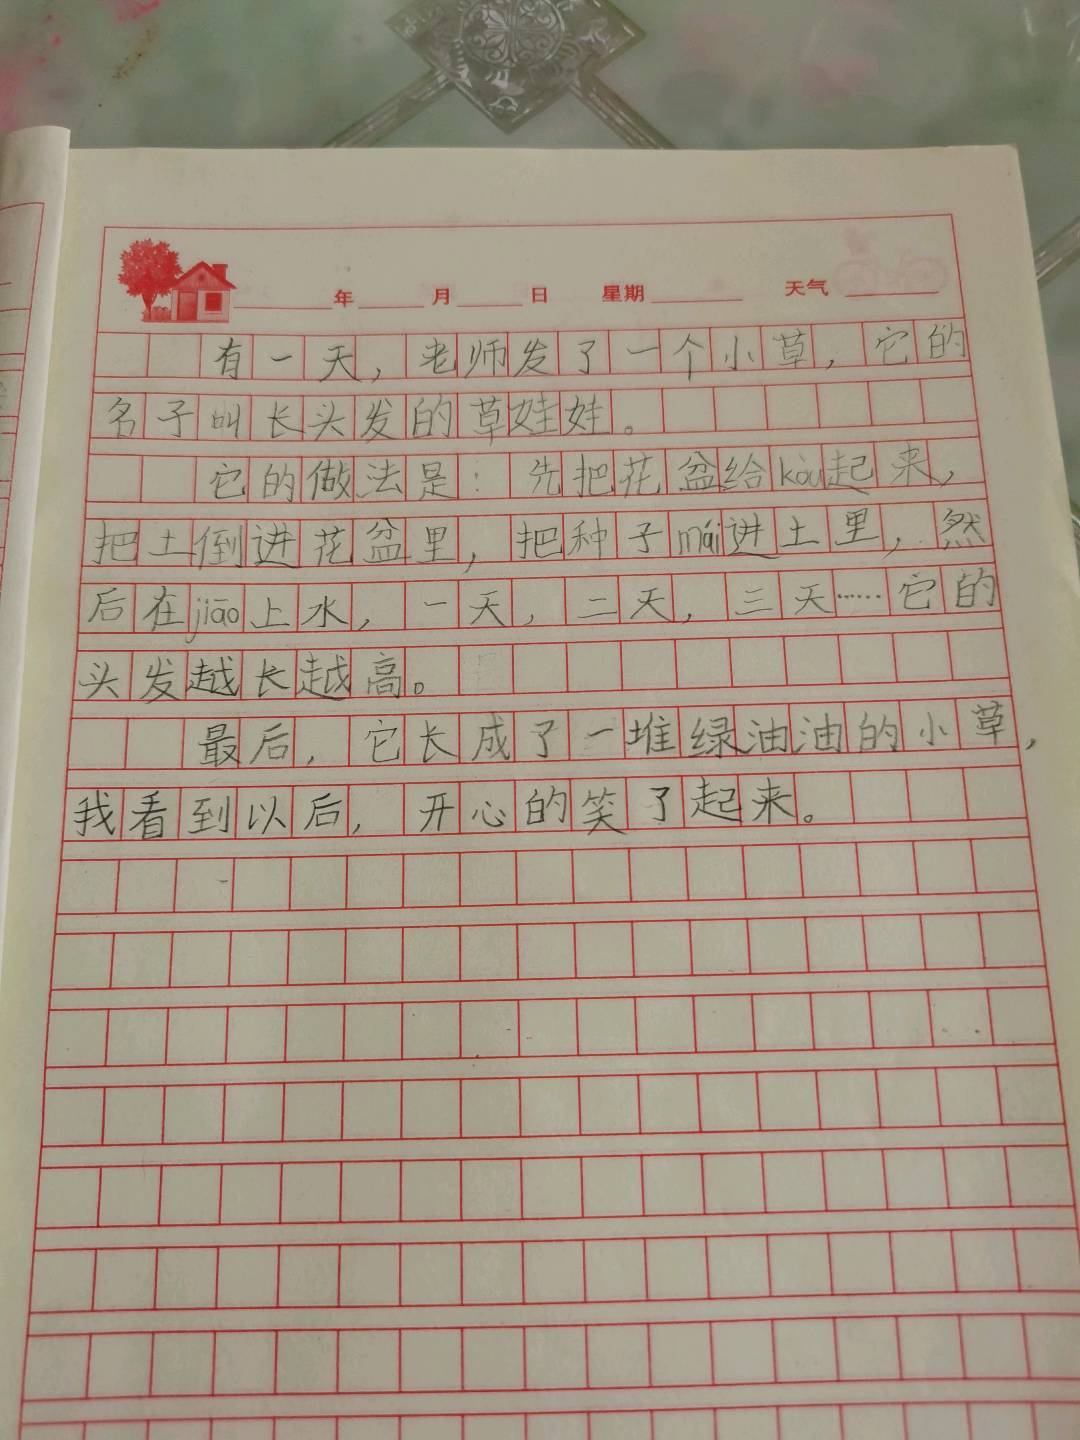 年 月 日 星期 天气
有一天，老师发了一个小草，它的
名子叫长头发的草娃娃。
它的做法是：先把花盆给kòu起来，
把土倒进花盆里，把种子mái进土里，然
后在jiāo上水，一天，二天，三天……它的
头发越长越高。
最后，它长成了一堆绿油油的小草，
我看到以后，开心的笑了起来。